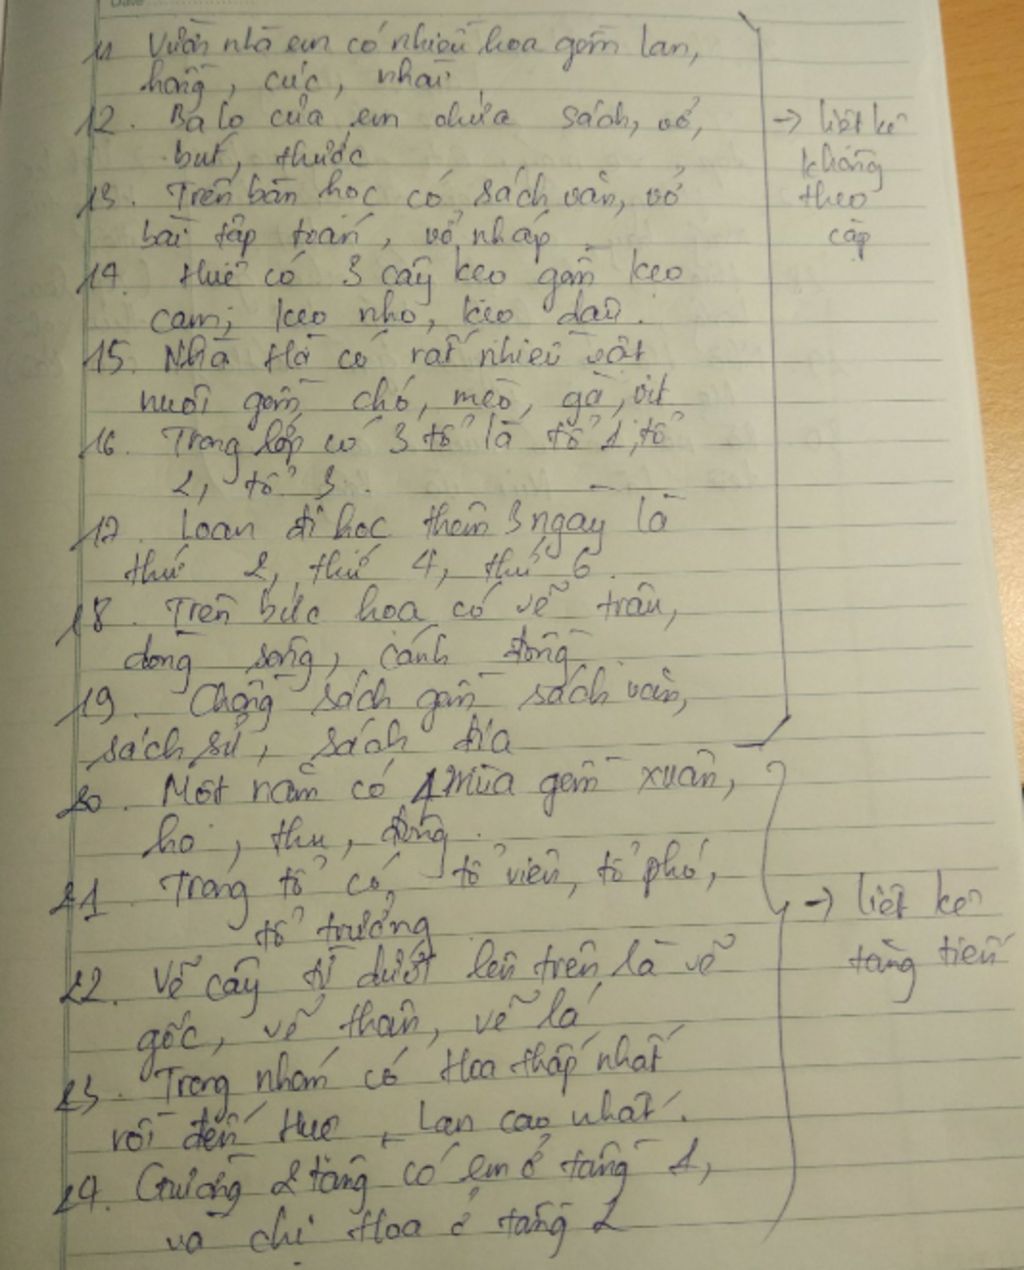 11 Vườn nhà em có nhiều hoa gồm lan,
hồng, cúc, nhài
12. Balo của em chứa sách, vở,
bút, thước
→ liệt kê
không
theo
cặp
13. Trên bàn học có sách văn, vở
bài tập toán, vở nháp
14. Huê có 3 cây kẹo gồm kẹo
cam, kẹo nho, kẹo dâu.
15. Nhà Hà có rất nhiều vật
nuôi gồm chó, mèo, gà, vịt
16. Trong lớp có 3 tổ là tổ 1, tổ
2, tổ 3.
17. Loan đi học thêm 3 ngày là
thứ 2, thứ 4, thứ 6.
18. Trên bức họa có vẽ trâu,
dòng sông, cánh đồng
19. Chồng sách gồm sách văn,
sách sử, sách địa
20. Một năm có 4 mùa gồm xuân,
hạ, thu, đông.
21. Trong tổ có tổ viên, tổ phó,
tổ trưởng
→ liệt kê
tăng tiến
22. Vẽ cây từ dưới lên trên là vẽ
gốc, vẽ thân, vẽ lá
23. Trong nhóm có Hoa thấp nhất
rồi đến Huê, Lan cao nhất.
24. Giường 2 tầng có em ở tầng 1,
và chị Hoa ở tầng 2